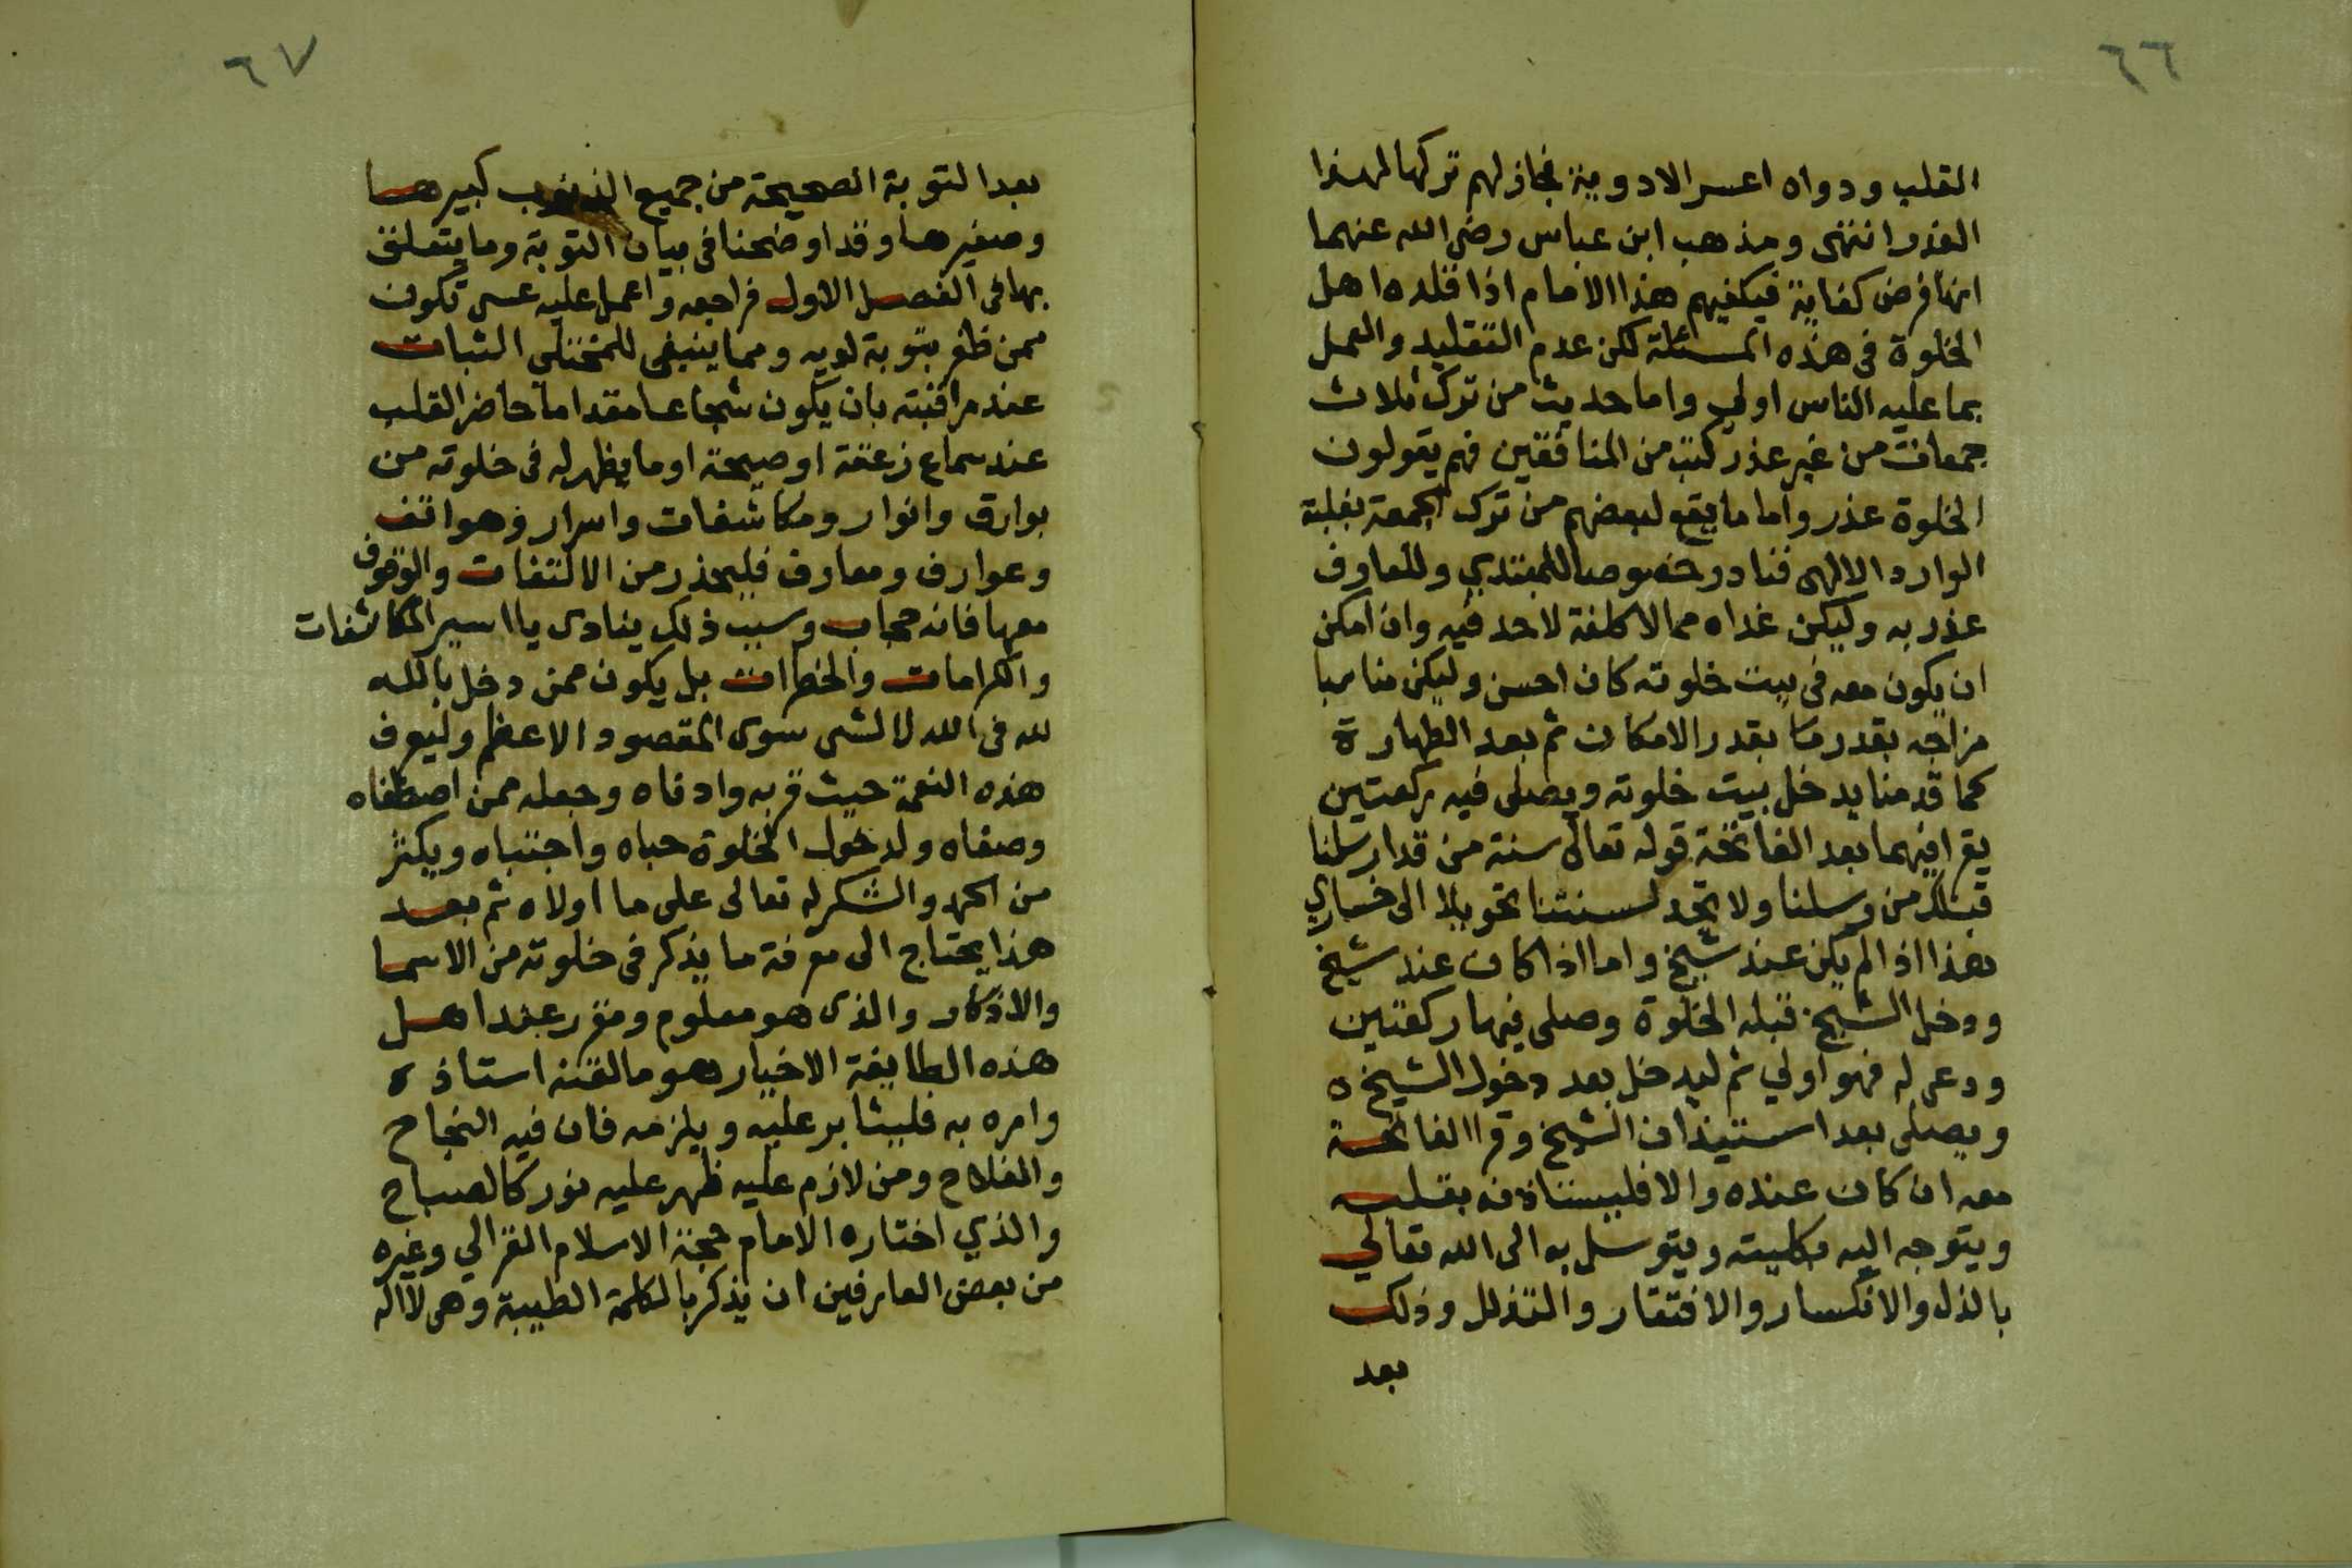 ٦٦
القلب ودواه اعسر الادوية فجاز لهم تركها لهذا
العذر انتهى ومذهب ابن عباس رضي الله عنهما
انها فرض كفاية فيكفيهم هذا الامام اذا قلده اهل
الخلوة في هذه المسئلة لكن عدم التقليد والعمل
بما عليه الناس اولي واما حديث من ترك ثلاث
جمعات من غير عذر كتب من المنافقين فهم يقولون
الخلوة عذر واما ما يقع لبعضهم من ترك الجمعة بغلبة
الوارد الالهي فنادر خصوصا للمبتدي وللعارف
عذر به وليكن غداه مما لا كلفة لاحد فيه وان امكن
ان يكون معه في بيت خلوته كان احسن وليكن مناسبا
مزاجه بقدر ما بقدر الامكان ثم بعد الطهارة
كما قدمنا يدخل بيت خلوته ويصلى فيه ركعتين
يقرا فيهما بعد الفاتحة قوله تعالى سنة من قد ارسلنا
قبلك من رسلنا ولا تجد لسنتنا تحويلا الى خسارا
هذا اذا لم يكن عند شيخ واما اذا كان عند شيخ
ودخل الشيخ قبله الخلوة وصلى فيها ركعتين
ودعى له فهو اولي ثم ليدخل بعد دخول الشيخ ه
ويصلى بعد استيذان الشيخ وقرا الفاتحة
معه ان كان عنده والا فليستاذنه بقلبه
ويتوجه اليه بكليته ويتوسل به الى الله تعالي
بالذل والانكسار والافتقار والتذلل وذلك
بعد
٦٧
بعد التوبة الصحيحة من جميع الذنوب كبيرها
وصغيرها وقد اوضحنا في بيان التوبة وما يتعلق
بها في الفصل الاول فراجعه واعمل عليه عسى تكون
ممن ظفر بتوبة لويه ومما ينبغي للمختلى الثبات
عند مراقبته بان يكون شجاعا مقداما حاضر القلب
عند سماع زعقة او صيحة او ما يظهر له في خلوته من
بوارق وانوار ومكاشفات واسرار وهواتف
وعوارف ومعارف فليحذر من الالتفات والوقوف
معها فانه حجاب وسبب ذلك ينادى يا اسير المكاشفات
والكرامات والخطرات بل يكون ممن دخل بالله
لله في الله لا لشى سوى المقصود الاعظم وليعرف
هذه النعمة حيث قربه وادناه وجعله ممن اصطفاه
وصفاه ولدخول الخلوة حباه واجتباه ويكثر
من الحمد والشكر له تعالى على ما اولاه ثم بعد
هذا يحتاج الى معرفة ما يذكر في خلوته من الاسما
والاذكار والذى هو معلوم ومقرر عند اهل
هذه الطايفة الاخيار هو ما لقنه استاذه
وامره به فليثابر عليه ويلزمه فان فيه النجاح
والفلاح ومن لازم عليه ظهر عليه نور كالصباح
والذي اختاره الامام حجة الاسلام الغزالي وغيره
من بعض العارفين ان يذكر بالكلمة الطيبة وهى لا اله